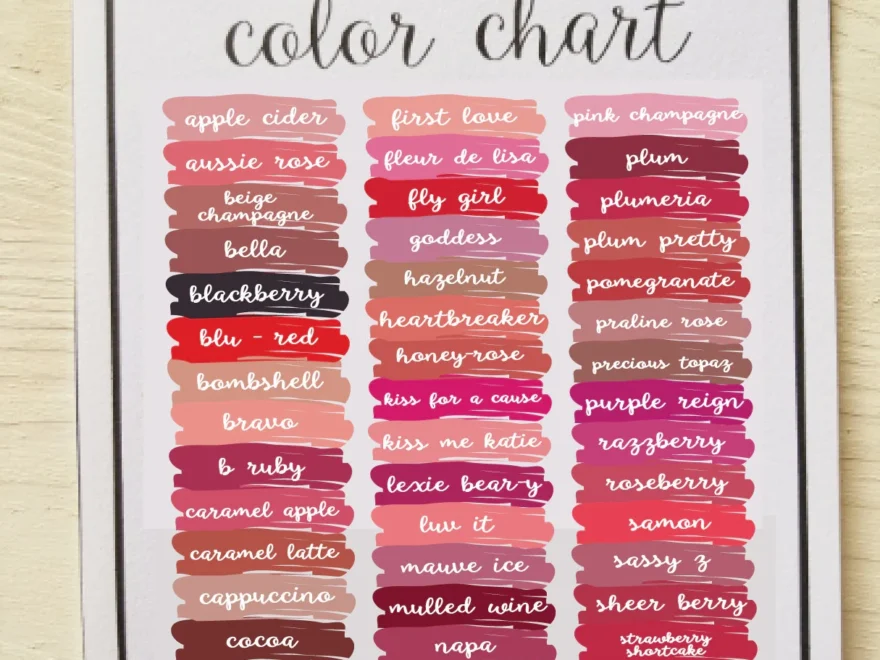 color chart
apple cider
aussie rose
beige
champagne
bella
blackberry
blu - red
bombshell
bravo
b ruby
caramel apple
caramel latte
cappuccino
cocoa
first love
fleur de lisa
fly girl
goddess
hazelnut
heartbreaker
honey-rose
kiss for a cause
kiss me katie
lexie bear-y
luv it
mauve ice
mulled wine
napa
pink champagne
plum
plumeria
plum pretty
pomegranate
praline rose
precious topaz
purple reign
razzberry
roseberry
samon
sassy z
sheer berry
strawberry
shortcake